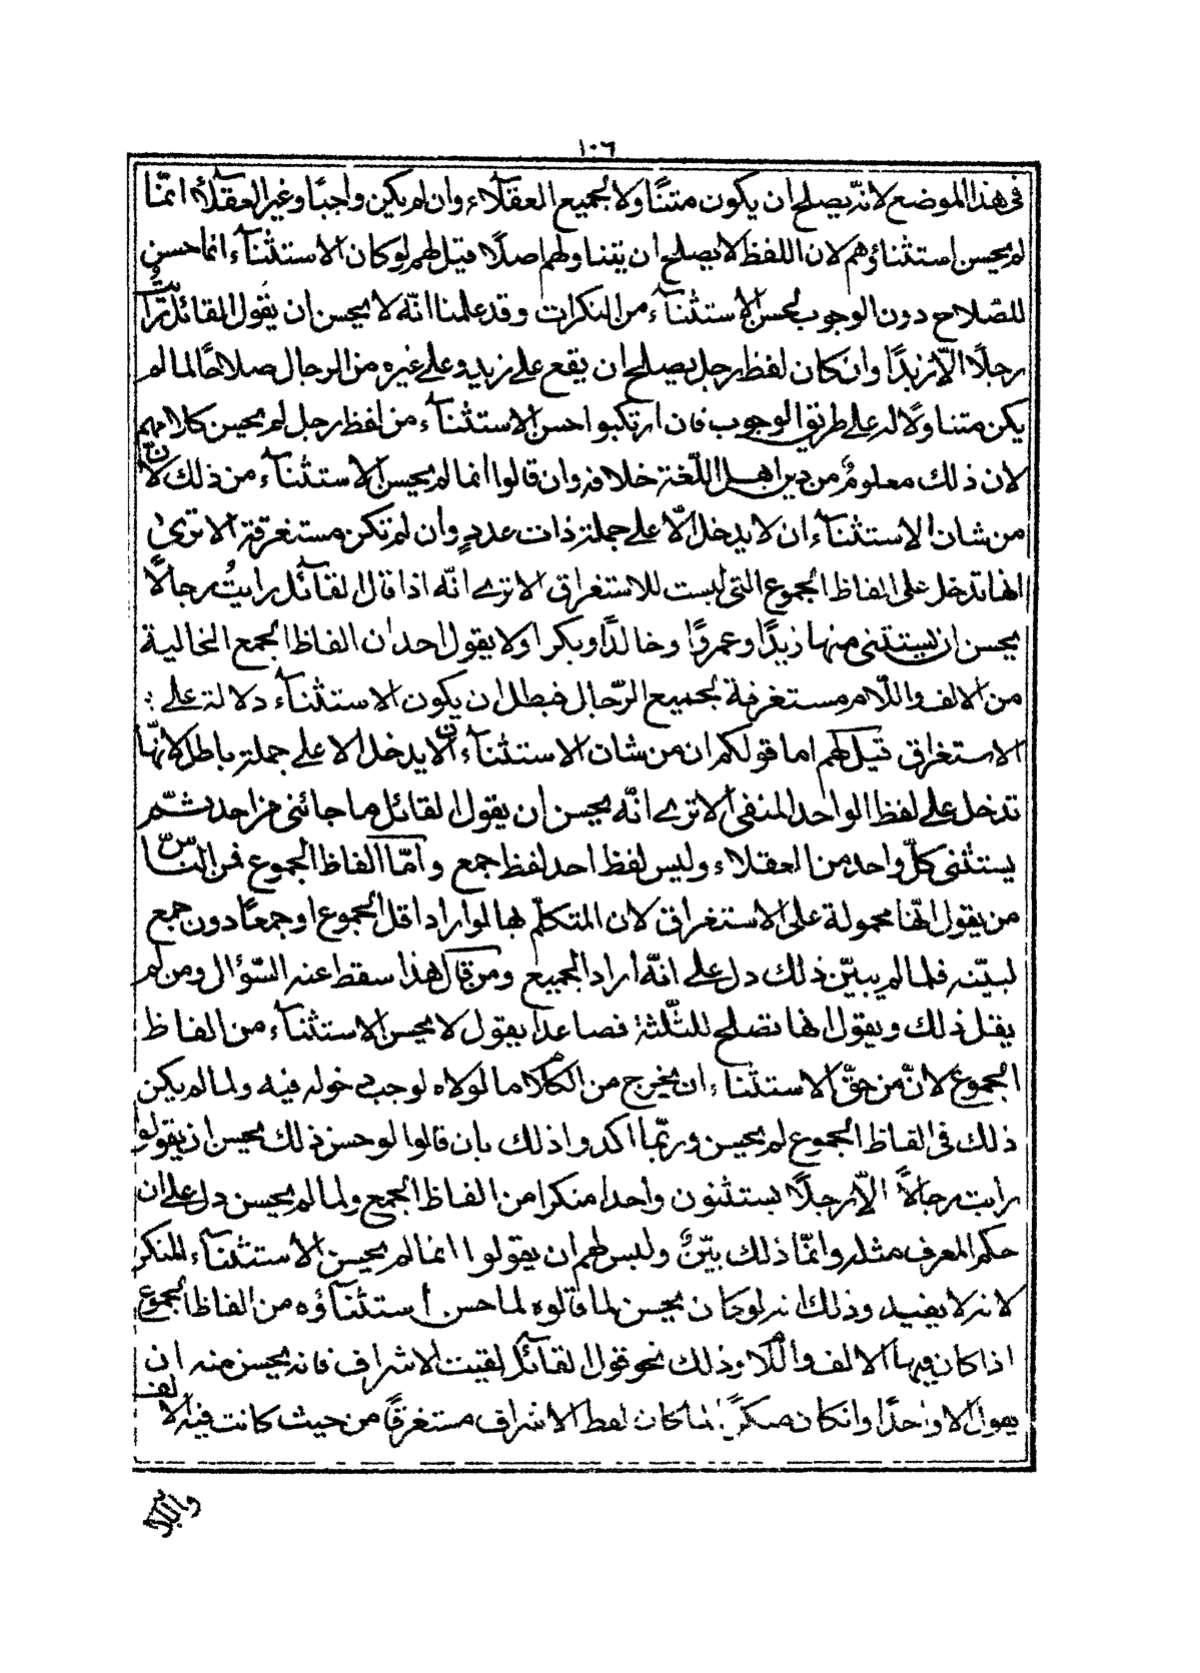 ١٠٦
فى هذا الموضع لانّه يصلح ان يكون متناولا لجميع العقلآء وان لم يكن واجبًا وغير العقلآء انمّا
لم يحسن استثناؤهم لان اللفظ لا يصلح ان يتناولهم اصلًا قيل لهم لو كان الاستثنآء انما حسن
للصّلاح دون الوجوب لحسن الاستثنآء من النكرات وقد علمنا انّه لا يحسن ان يقول القائل رايت
رجلًا الّا زيدًا وان كان لفظ رجل يصلح ان يقع على زيد وعلى غيره من الرجال صلاحًا لما لم
يكن متناولًا له على طريق الوجوب فان ارتكبوا حسن الاستثنآء من لفظ رجل لم يحسن كلامهم
لان ذلك معلومٌ من دين اهل اللّغة خلافه وان قالوا انما لم يحسن الاستثنآء من ذلك لانّ
من شان الاستثنآء ان لا يدخل الّا على جملة ذات عددٍ وان لم تكن مستغرقة الا ترى
انها تدخل على الفاظ الجموع التى ليست للاستغراق الا ترى انّه اذا قال القآئل رايتُ رجالًا
يحسن ان يستثنى منها زيدًا وعمروًا وخالدًا وبكرا ولا يقول احد ان الفاظ الجمع الخالية
من الالف واللّام مستغرقة لجميع الرّجال فبطل ان يكون الاستثنآء دلالة على
الاستغراق قيل لهم اما قولكم ان من شان الاستثنآء ان لا يدخل الا على جملة باطل لانّها
تدخل على لفظ الواحد المنفى الا ترى انّه يحسن ان يقول القائل ما جائنى من احد ثمّ
يستثنى كلّ واحد من العقلاء وليس لفظ احد لفظ جمع وامّا الفاظ الجموع فمن النّاس
من يقول انّها محمولة على الاستغراق لان المتكلّم بها لو اراد اقل الجموع او جمعًا دون جمع
لبيّنه فلما لم يبيّن ذلك دل على انّه اراد الجميع ومن قال هذا سقط عنه السّؤال ومن لم
يقل ذلك ويقول انها تصلح للثّلثة فصاعدًا يقول لا يحسن الاستثنآء من الفاظ
الجموع لانّ من حقّ الاستثناء ان يخرج من الكلام ما لولاه لوجب دخوله فيه ولما لم يكن
ذلك فى الفاظ الجموع لم يحسن وربّما اكدوا ذلك بان قالوا لو حسن ذلك يحسن ان يقولوا
رايت رجالاً الّا رجلًا يستثنون واحدا منكرا من الفاظ الجمع ولما لم يحسن دل على ان
حكم المعرف مثله وانمّا ذلك بيّنٌ وليس لهم ان يقولوا انما لم يحسن الاستثنآء المنكر
لانه لا يفيد وذلك انه لو كان يحسن لما قالوه لما حسن استثنآؤه من الفاظ الجموع
اذا كان فيها الالف واللام وذلك نحو قول القآئل لقيت الاشراف فانه يحسن منه ان
يقول الا واحدًا وانكان منكرًا لما كان لفظ الاشراف مستغرقًا من حيث كانت فيه الالف
واللام